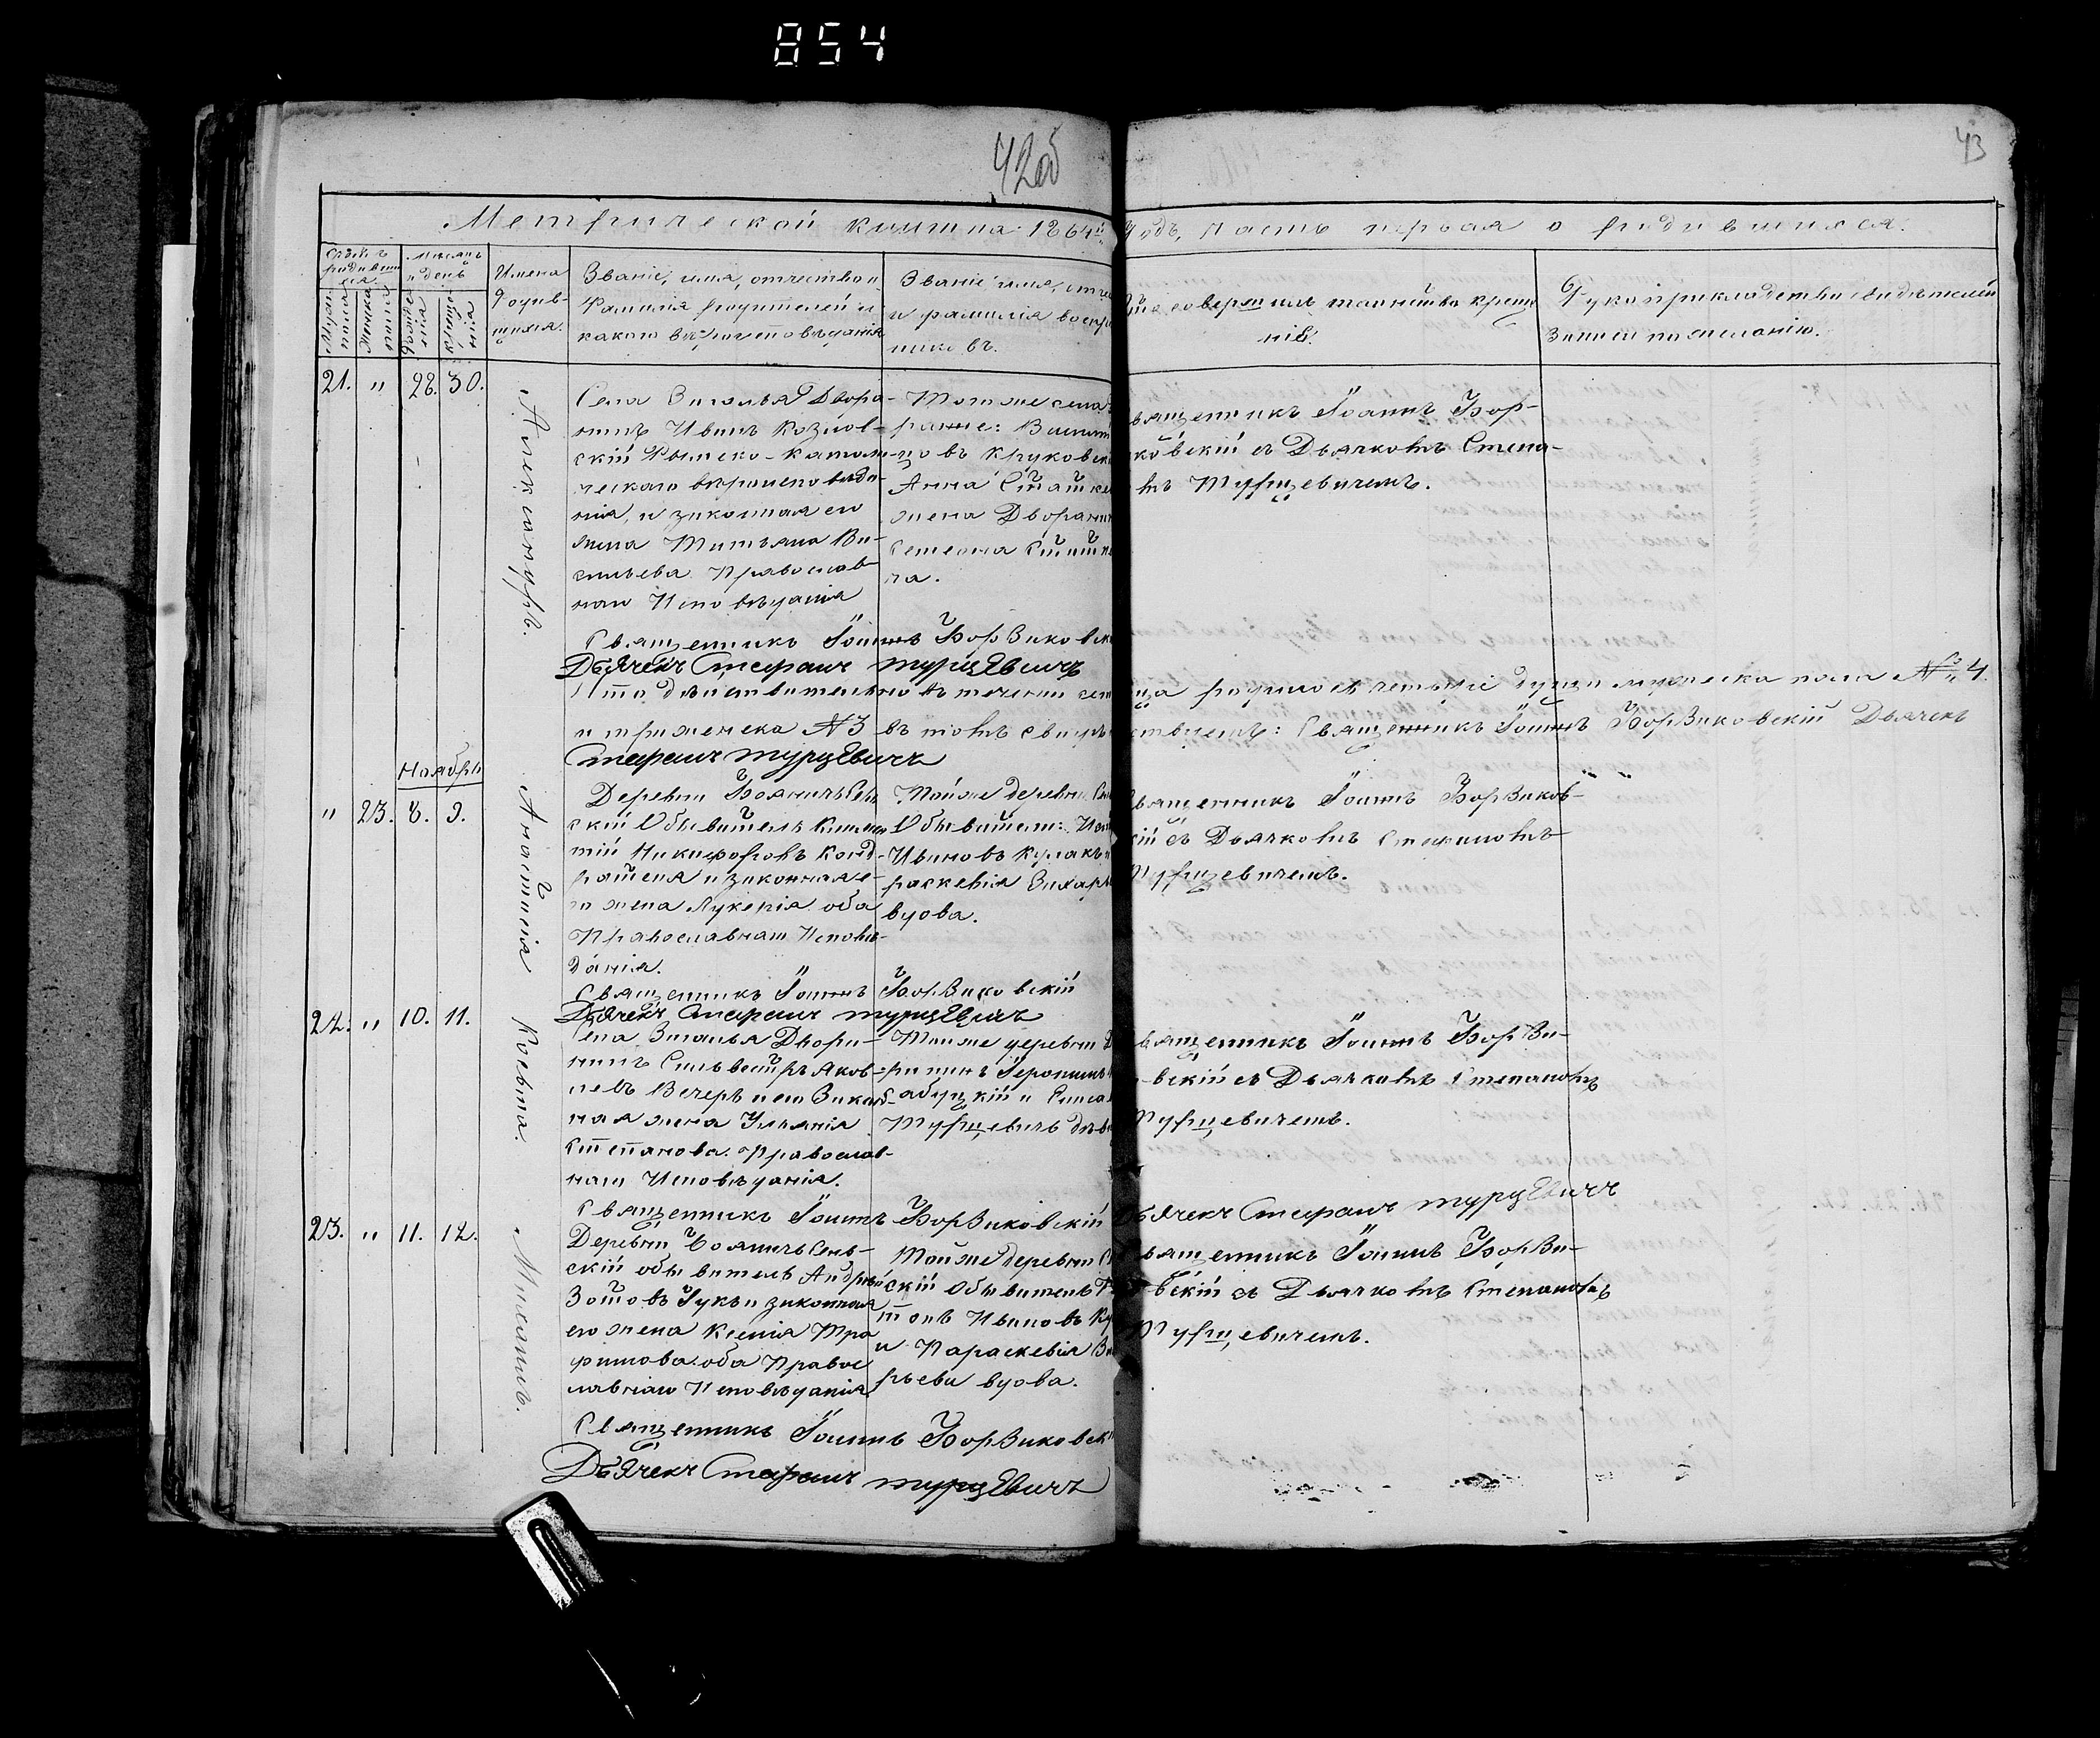 854
42об
43
Метрической книги на 1864й Годъ, часть первая о родившихся.
Счетъ родившихся.
Мужеска пола
Женска пола
Мѣсяцъ и день
рожденія
крещенія
Имена родившихся.
Званіе, имя, отчество и
Фамилія родителей и
какого вѣроисповѣданія
Званіе имя, отче
и фамилія воспрі
никовъ.
Кто совершилъ таинство креще
нія.
Рукоприкладство свидѣтелей
записи по желанію.
21. " 28. 30.
Александръ.
Села Виголья Дворя-
нинъ Иванъ Козлов-
скій Римско-католи-
ческаго вѣроисповѣда-
нія, и законная его
жена Татьяна Ва-
сильева Православ-
наго Исповѣданія
Того же села
Круковск
Анна Сташке
жена Дворянин
Семеона Сташк
ча.
вященникъ Іоаннъ Бор-
ковскій съ Дьячкомъ Степа-
мъ Турцевичемъ.
Священникъ Іоаннъ Борзиковск
Дьячекъ Стефанъ турцЕвичъ
Что дѣйствительно въ теченіи сего
ца родилось четыре души мужеска пола № 4.
и три женска №3 въ томъ свидѣ
ствуемъ: Священникъ Іоаннъ Борзиковскій Дьячекъ
Стефанъ турцЕвичъ
Ноября
" 23. 8. 9.
Анастасія
Деревни Бояничь Сель
скій Обыватель
Никифоровъ Конд-
ратеня и законная е-
го жена Лукерія оба
Православнаго Исповѣ-
данія.
Той же деревни Се
Обыватели:
Ивановъ Кулакъ и
раскевія Захарь
вдова.
вященникъ Іоаннъ Борзиков-
кій съ Дьячкомъ Стефаномъ
Турцевичемъ.
Священникъ Іоаннъ Борзиковскій
Дьячекъ Стефанъ турцЕвичъ
22. " 10. 11.
Козьма.
Села Виголья Дворя-
нинъ Сильвестръ Яков-
левъ Вечеръ и его Закон-
ная жена Уліянія
Степанова Православ-
наго Исповѣданія.
Той же деревни Д
рянинъ Іеронимъ
абуцкій и Елиса
Турцевичъ дѣв
вященникъ Іоаннъ Борзи-
вскій съ Дьячкомъ Степаномъ
Турцевичемъ.
Священникъ Іоаннъ Борзиковскій Дьячекъ Стефанъ турцЕвичъ
23. " 11. 12.
Михаилъ.
Деревни Бояничь Сель-
скій обыватель Андрей
Зотовъ Гукъ и законная
его жена Ксенія Тро
фимова оба Правос
лавнаго Исповѣданія
Той же деревни Се
скій Обыватель
тонъ Ивановъ Ку
и Параскевія За
рьева вдова.
вященникъ Іоаннъ Борзи-
вскій съ Дьячкомъ Степаномъ
Турцевичемъ.
Священникъ Іоаннъ Борзиковск
Дьячекъ Стефанъ турцЕвичъ